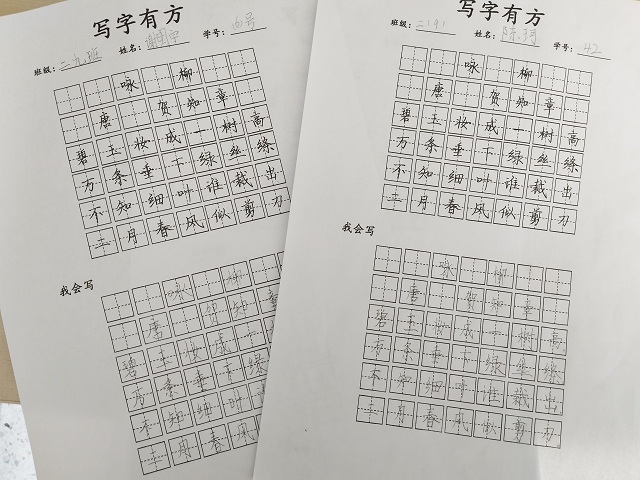 写字有方
班级：二九班 姓名： 学号：
咏 柳
唐 贺 知 章
碧 玉 妆 成 一 树 高
万 条 垂 下 绿 丝 绦
不 知 细 叶 谁 裁 出
二 月 春 风 似 剪 刀
我会写
咏 柳
唐 贺 知 章
碧 玉 妆 成 一
万 条 垂 下 绿
不 知 细 叶
二 月 春 风
写字有方
班级：二（9） 姓名：陈 学号：42
咏 柳
唐 贺 知 章
碧 玉 妆 成 一 树 高
万 条 垂 下 绿 丝 绦
不 知 细 叶 谁 裁 出
二 月 春 风 似 剪 刀
我会写
咏 柳
唐 贺 知 章
碧 玉 妆 成 一 树 高
万 条 垂 下 绿 丝 绦
不 知 细 叶 谁 裁 出
二 月 春 风 似 剪 刀